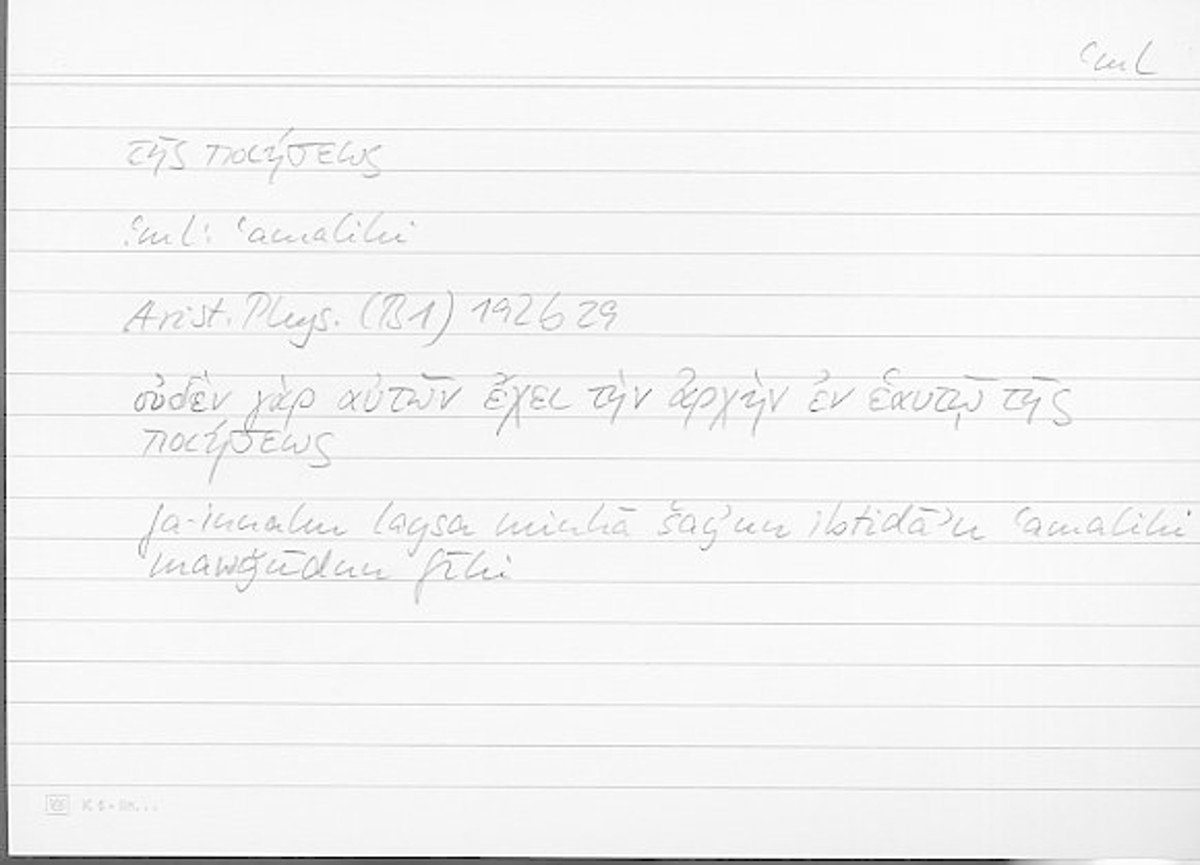 ʿml
τῆς ποιήσεως
ʿml: ʿamalihi
Arist. Phys. (B1) 192b29
οὐδὲν γὰρ αὐτῶν ἔχει τὴν ἀρχὴν ἐν ἑαυτῷ τῆς
ποιήσεως
fa-innahu laysa minhā šayʾun ibtidāʾu ʿamalihi
mawǧūdun fīhi